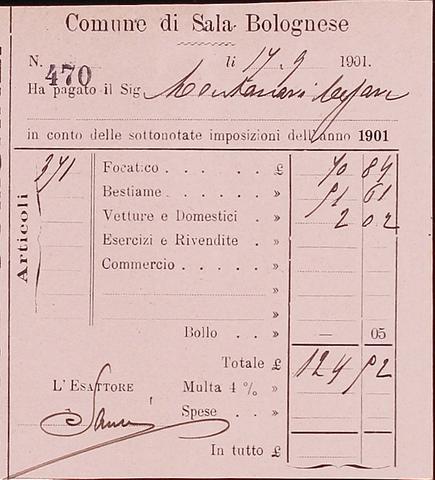 Comune di Sala Bolognese
N. 470 li 17.9 1901.
Ha pagato il Sig. Montanari Cesare
in conto delle sottonotate imposizioni dell'anno 1901
Articoli
371 Focatico . . . . . £ 70 84
Bestiame . . . . . » 51 61
Vetture e Domestici . » 2 02
Esercizi e Rivendite . »
Commercio . . . . . »
»
»
Bollo . » — 05
Totale £ 124 52
L'ESATTORE Multa 4 % »
Spese . . »
In tutto £